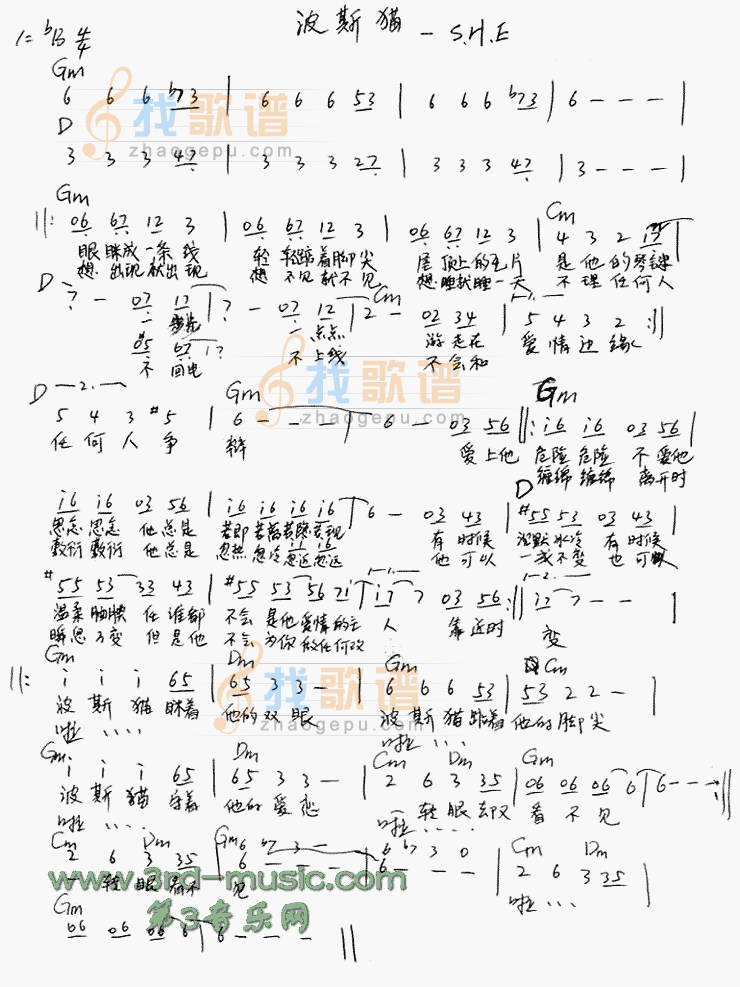 波斯猫 — S.H.E
1=bB 4/4
Gm
6 6 6 b73 | 6 6 6 53 | 6 6 6 b73 | 6 - - - |
D
3 3 3 47 | 3 3 3 27 | 3 3 3 47 | 3 - - - |
找歌谱
zhaogepu.com
Gm Cm
||: 06 67 12 3 | 06 67 12 3 | 06 67 12 3 | 4 3 2 17
眼眯成一条线 轻轻踮着脚尖 屋顶上的瓦片 是他的琴键
想出现就出现 想不见就不见 想睡就睡一天 不理任何人
D Cm 1.
7 - 07 17 | 7 - 07 12 | 2 - 02 34 | 5 4 3 2 :||
一 一点点 游走在 爱情边缘
#5 67 7
不回电 不上线 不会和
D 2. Gm Gm
5 4 3 #5 | 6 - - - | 6 - 03 56 ||: i6 i6 03 56 |
任何人争 辩 爱上他 危险危险 不爱他
缠绵缠绵 离开时
找歌谱
zhaogepu.com
D
i6 i6 03 56 | i6 i6 i6 i6 | 6 - 03 43 | #55 53 03 43 |
思念思念 他总是 若即若离若隐若现 有时候 沉默冰冷 有时候
敷衍敷衍 他总是 忽热忽冷忽近忽远 他可以 一成不变 也可以
#55 53 33 43 | #55 53 56 7i | i7 7 03 56 :|| i7 7 - - |
温柔腼腆 任谁都 不会是他爱情的主 人 靠近时 变
瞬息万变 但是他 不会为你做任何改
Gm Dm Gm Cm
||: i i i 65 | 65 3 3 - | 6 6 6 53 | 53 2 2 - |
波斯猫眯着 他的双眼 波斯猫踮着 他的脚尖
啦.... 啦....
找歌谱
zhaogepu.com
Gm Dm Cm Dm Gm
i i i 65 | 65 3 3 - | 2 6 3 35 | 06 06 06 6 | 6 - - - :||
波斯猫守着 他的爱恋 一转眼却又 看不见
啦.... 啦....
Cm Dm Gm Cm Dm
2 6 3 35 | 6 - - - | 6 - - - | 2 6 3 35 |
6 b7 3 - 6 b7 3 0
一转眼看不 见 啦....
www.3rd-music.com
第3音乐网
Gm
06 06 06 6 | 6 - - - ||